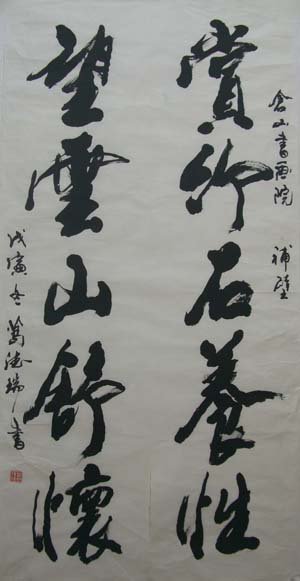 含山書画院 補壁
賞竹石養性
望雲山舒懷
戊寅冬 葛德瑞書